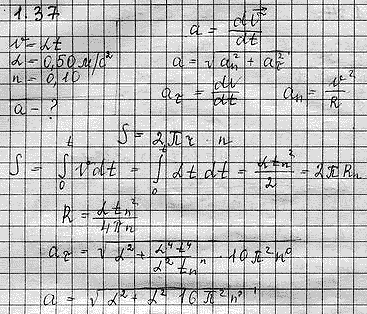 1.37
v = αt
α = 0,50 м/с²
n = 0,10
a - ?
a = dv⃗/dt
a = √aₙ² + a_τ²
a_τ = dv/dt   aₙ = v²/R
S = 2πr · n
S = ∫₀ᵗ v dt = ∫₀ᵗ αt dt = αtₙ²/2 = 2πRn
R = αtₙ²/4πn
a_τ = √α² + α⁴t⁴/α²tₙⁿ · 10π²n⁰
a = √α² + α² 16π²n²